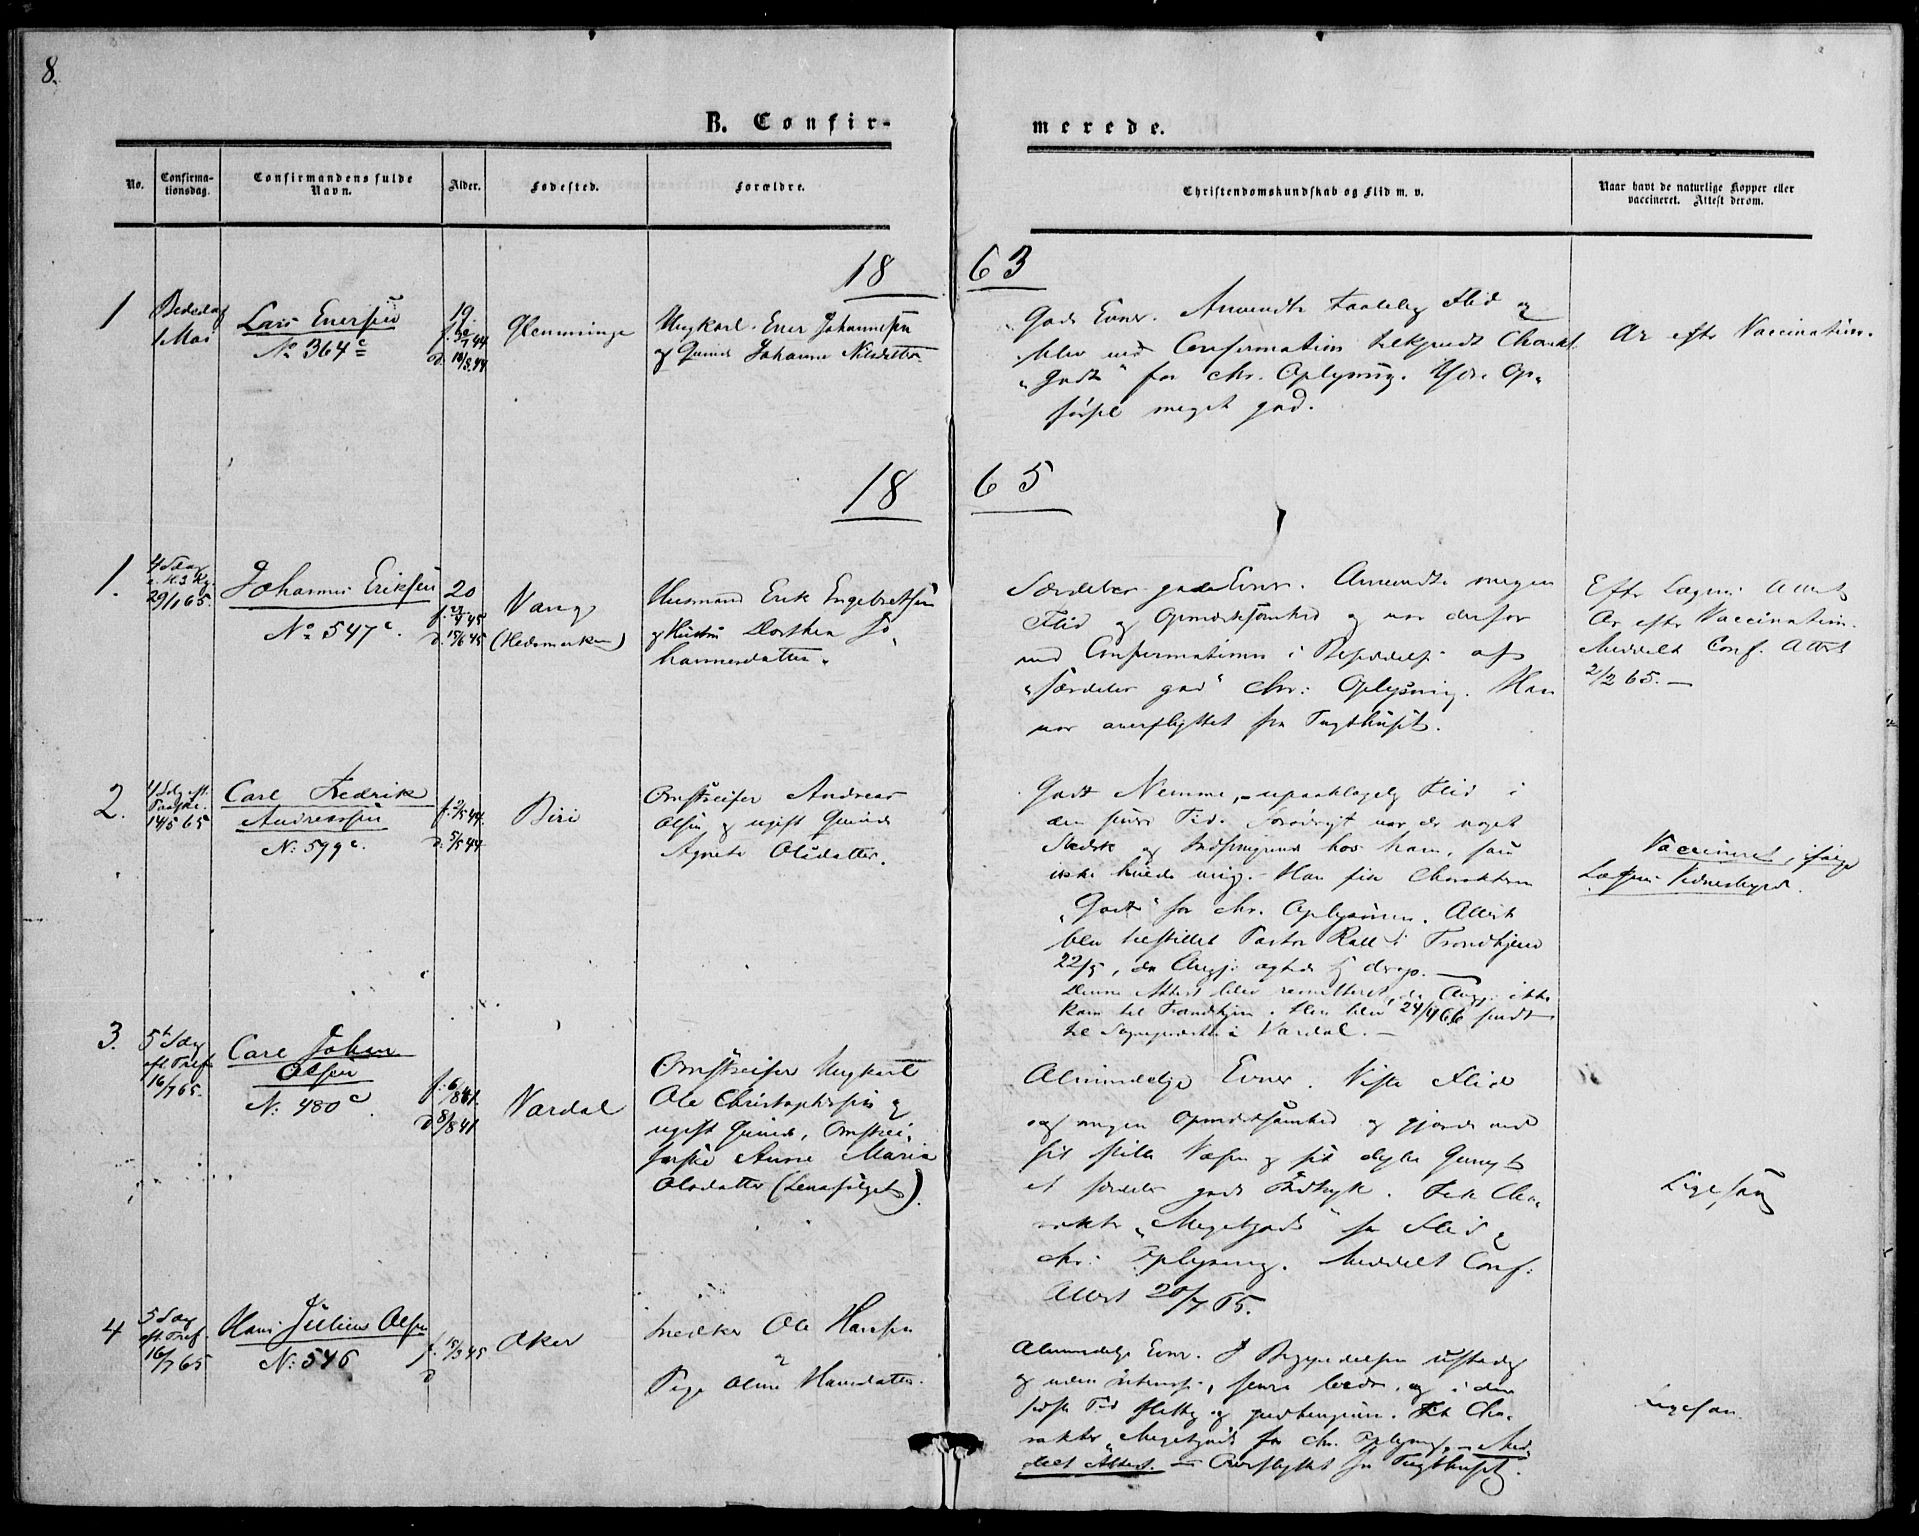 8.
B. Confir-
merede.
No.
Confirma-
tionsdag.
Confirmandens fulde
Navn.
Alder.
Fødested.
Forældre.
Christendomskundskab og Flid m. v.
Naar havt de naturlige Kopper eller
vaccineret. Attest derom.
18 63
1
Bededag
1 Mai
Lars Enersen
No 364c
19
f. 44
d. 10/3.44
Glemminge
Ungkarl Ener Johannesen
og Johanne Nilsdatter
Gode Evner. Anvendte taalelig Flid og
blev ved Confirmation tilkjendt Charakt.
"Godt" for chr. Oplysning. Ydre Op-
førsel meget god.
Ar efter Vaccination.
18 65
1.
4 Søndag
29/1 65.
Johannes Eriksen
No 547c.
20
f. 45
d. 15/6 45
Vang
(Hedemarken)
Husmand Erik Engebretsen
og Hustru Dorthea Jo-
hannesdatter.
Særdeles gode Evner. Anvendte megen
Flid og Opmærksomhed og var derfor
ved Confirmationen i Besiddelse af
"særdeles god" chr: Oplysning. Han
var overflyttet fra Tugthuset.
Efter Lægens Attest
Ar efter Vaccination.
Meddelt Conf. Attest
2/2 65. —
2.
4 Sdg eft.
Paaske.
14/5 65
Carl Fredrik
Andreassen
N: 599c.
f. 2/5 44.
d: 5/5 44
Biri
Omstreifer Andreas
Olsen og ugift Qvinde
Agnete Olsdatter.
Godt Nemme, upaaklagelig Flid i
den senere Tid. Forøvrigt var der noget
og hos ham, som
ikke mig. Han fik Charakteren
"Godt" for chr. Oplysning. Attest
blev tilstillet Pastor Rall i Trondhjem
22/5, da Angj: agtede sig derop. —
Denne Attest blev remitteret, da Angj: ikke
kom til Trondhjem. Den blev 24/4 66 sendt
til Sognepresten i Vardal. —
Vaccineret, ifølge
Lægens Vidnesbyrd.
3.
5te Søndag
eft. Tref
16/7 65.
Carl Johan
Olsen
N: 480c.
f: 6/8 41.
d 8/8 41
Vardal
Omstreifer Ungkarl
Ole Christophersen og
ugift Qvinde, Omstrei-
ferske Anne Maria
Olsdatter (Lenafølget).
Almindelige Evner. Viste Flid
og megen Opmærksomhed og gjorde ved
sit stille Væsen og sit
et særdeles godt Indtryk. Fik Cha-
rakter "Megetgodt" for Flid og
chr: Oplysning. Meddelt Conf:
Attest 20/7 65.
Ligesaa
4
5 Søndag
eft. Tref.
16/7 65
Hans Julius Olsen
N: 546
f. 15/3 45
d
Aker
Snedker Ole Hansen
og
Pige Oline Hansdatter.
Almindelige Evner. I Begyndelsen ustadig
og uden Interesse, senere bedre, og i den
sidste Tid flittig og . Fik Cha-
rakter "Megetgodt" for chr. Oplysning. — Med-
delt Attest. — Overflyttet fra Tugthuset.
Ligesaa.